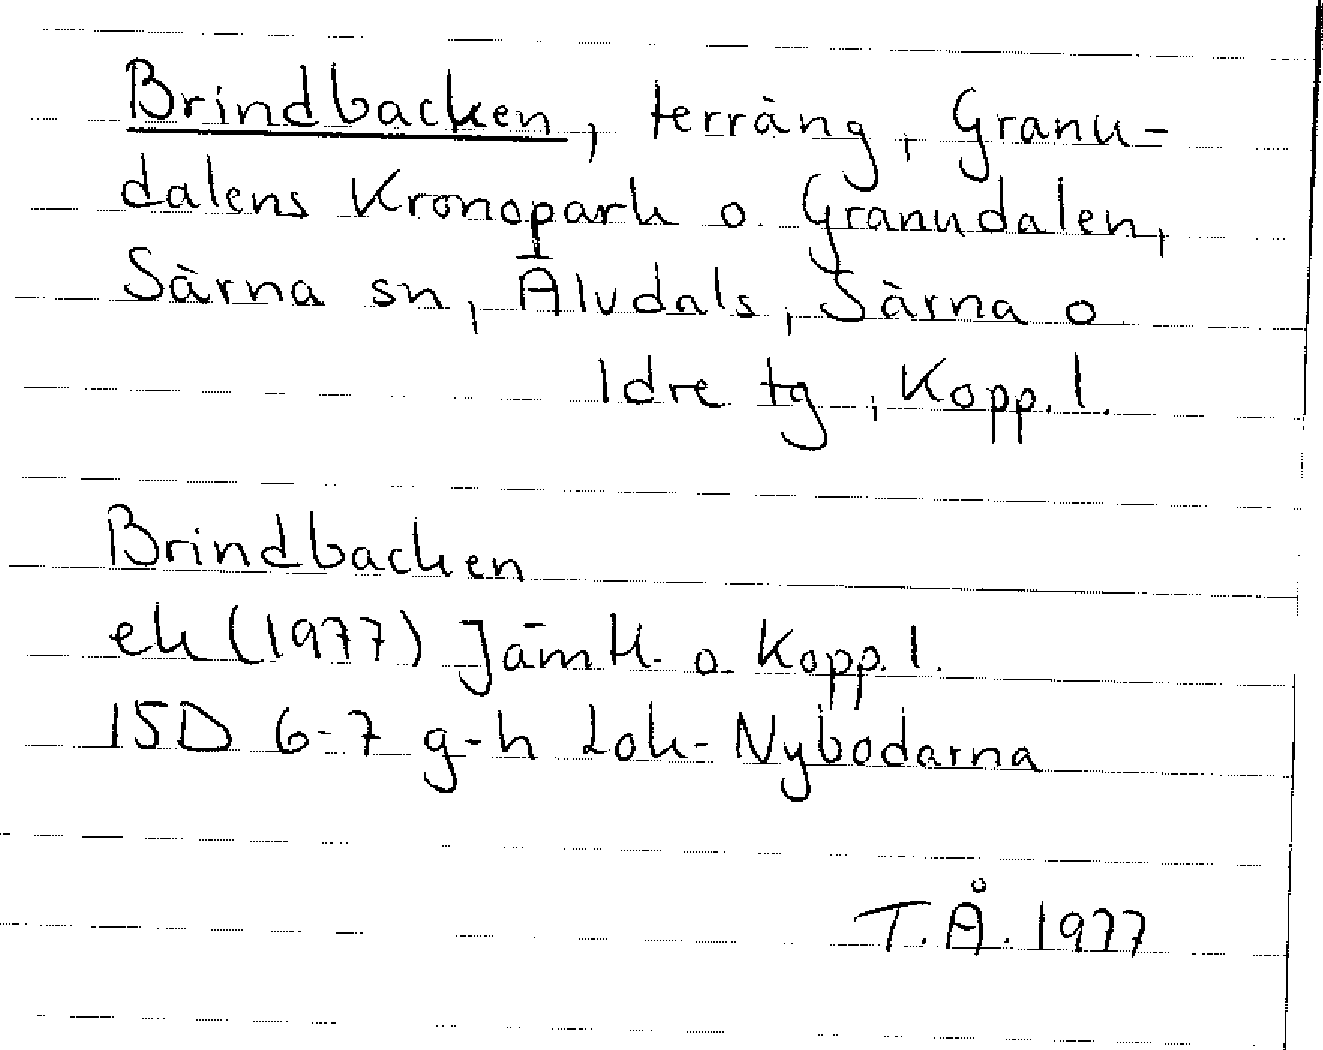 Brindbacken, terräng, Granu-
dalens Kronopark o. Granudalen,
Särna sn, Älvdals, Särna o
Idre tg, Kopp. l.
Brindbacken
ek (1977) Jämtl. o Kopp. l.
15D 6-7 g-h Lok-Nybodarna
T.Å. 1977